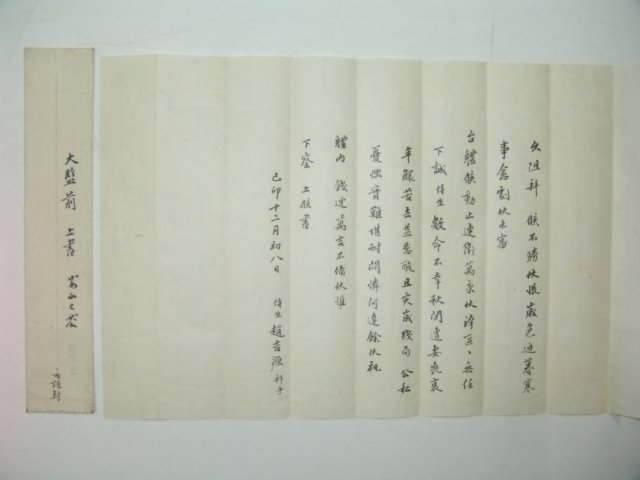 久阻拜 候不勝伏悵歲色迫暮寒
事愈劇伏未審
台體候動止連衛萬柔伏 區區無任
下誠侍生 數命不幸秋間遭妻喪衰
年鰥苦去益悲 且灾歲殘局 公私
憂惱實難堪耐 憐何達餘伏祝
體內 餞迓萬吉不備伏惟
下察 上候書
己卯十二月初八日 侍生 趙 源 拜手
大監前 上書
謹封